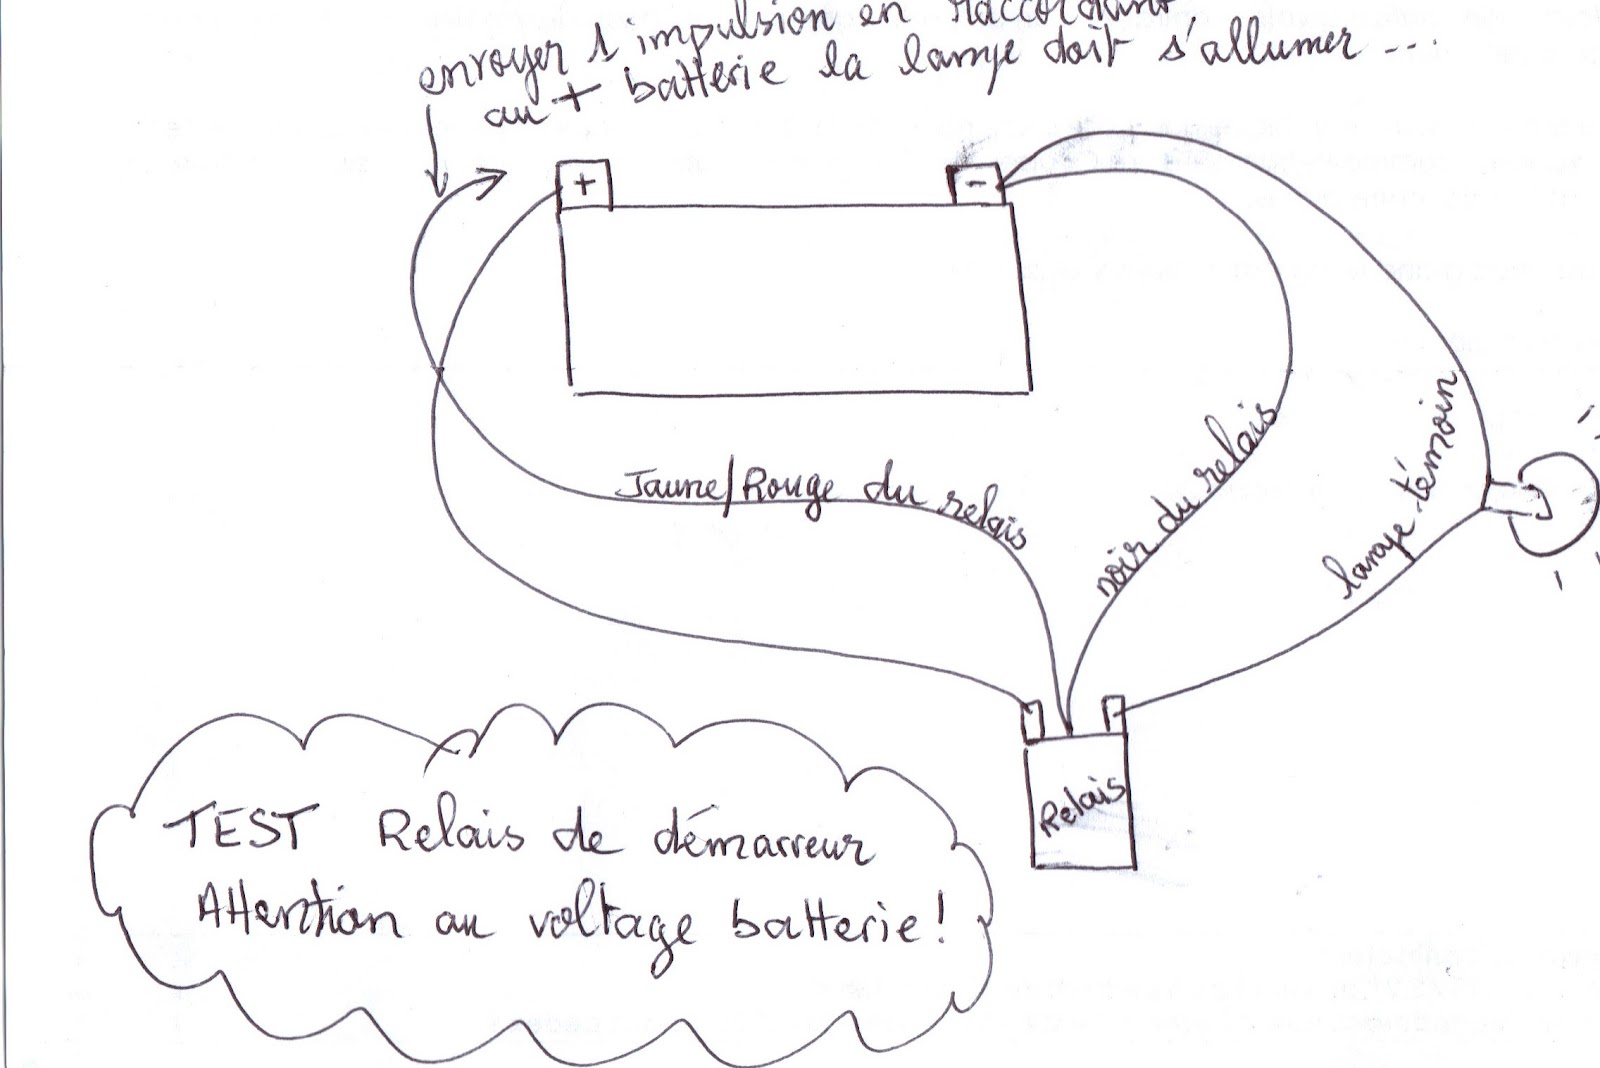 envoyer 1 impulsion en raccordant
au + batterie la lampe doit s'allumer ...
+
-
Jaune/Rouge du relais
noir du relais
lampe témoin
Relais
TEST Relais de démarreur
Attention au voltage batterie!